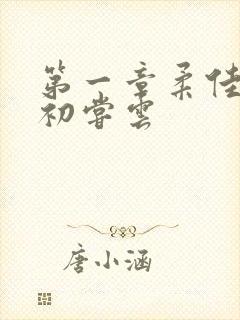 第一章柔佳
初尝雲
唐小涵